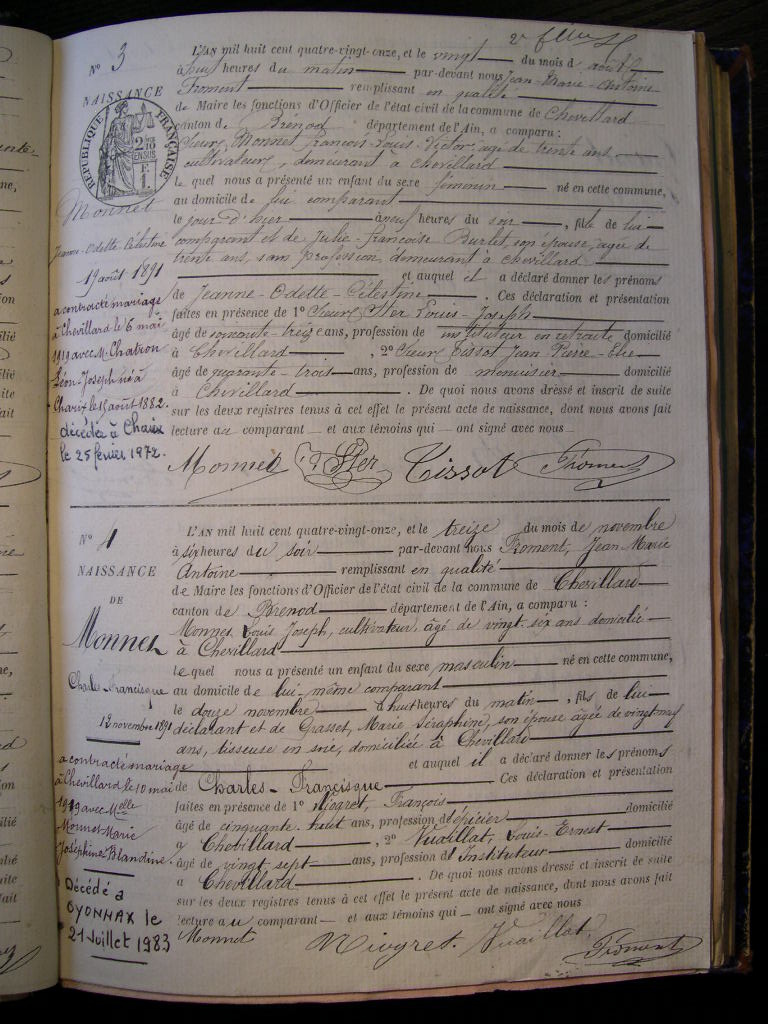 N° 3
NAISSANCE
RÉPUBLIQUE FRANÇAISE
Monnet
Jeanne-Odette Célestine
19 août 1891
a contracté mariage
à Chevillard le 6 mai
1919 avec M. Chatron
Léon-Joseph né à
Charix le 15 août 1882.
décédée à Charix
le 25 février 1972.
L'AN mil huit cent quatre-vingt-onze, et le vingt du mois d août
à heures du matin par-devant nous Jean-Marie-Antoine
Froment remplissant en qualité
de Maire les fonctions d'Officier de l'état civil de la commune de Chevillard
canton de Brénod département de l'Ain, a comparu :
Sieur Monnet François-Louis-Victor, âgé de trente ans
cultivateur, demeurant à Chevillard
le quel nous a présenté un enfant du sexe féminin né en cette commune,
au domicile de lui comparant
le jour d'hier à neuf heures du soir, fille de lui
comparant et de Julie-Françoise Burlet, son épouse, agée de
trente ans, sans profession, demeurant à Chevillard
et auquel il a déclaré donner les prénoms
de Jeanne-Odette-Célestine. Ces déclaration et présentation
faites en présence de 1° Sieur Louis-Joseph
âgé de soixante-treize ans, profession de instituteur en retraite domicilié
à Chevillard, 2° Sieur Tissot Jean Pierre-Elie
âgé de quarante-trois ans, profession de menuisier domicilié
à Chevillard. De quoi nous avons dressé et inscrit de suite
sur les deux registres tenus à cet effet le présent acte de naissance, dont nous avons fait
lecture au comparant et aux témoins qui ont signé avec nous
Monnet Tissot Froment
N° 4
NAISSANCE
DE
Monnet
Charles-Francisque
12 novembre 1891
a contracté mariage
à Chevillard le 10 mai
1919 avec Melle
Monnet Marie
Joséphine Blandine.
Décédé à
OYONNAX le
21 Juillet 1983
L'AN mil huit cent quatre-vingt-onze, et le treize du mois de novembre
à six heures du soir par-devant nous Froment, Jean Marie
Antoine remplissant en qualité
de Maire les fonctions d'Officier de l'état civil de la commune de Chevillard
canton de Brenod département de l'Ain, a comparu :
Monnet Louis Joseph, cultivateur, âgé de vingt-six ans domicilié
à Chevillard
le quel nous a présenté un enfant du sexe masculin né en cette commune,
au domicile de lui-même comparant
le douze novembre à huit heures du matin, fils de lui
déclarant et de Grasset, Marie Séraphine, son épouse âgée de vingt-neuf
ans, tisseuse en soie, domiciliée à Chevillard
et auquel il a déclaré donner les prénoms
de Charles-Francisque Ces déclaration et présentation
faites en présence de 1° Niogret, François
âgé de cinquante huit ans, profession d'épicier domicilié
à Chevillard, 2° Vuaillat, Louis-Ernest
âgé de vingt sept ans, profession d'Instituteur domicilié
à Chevillard. De quoi nous avons dressé et inscrit de suite
sur les deux registres tenus à cet effet le présent acte de naissance, dont nous avons fait
lecture au comparant et aux témoins qui ont signé avec nous
Monnet Niogret. Vuaillat. Froment